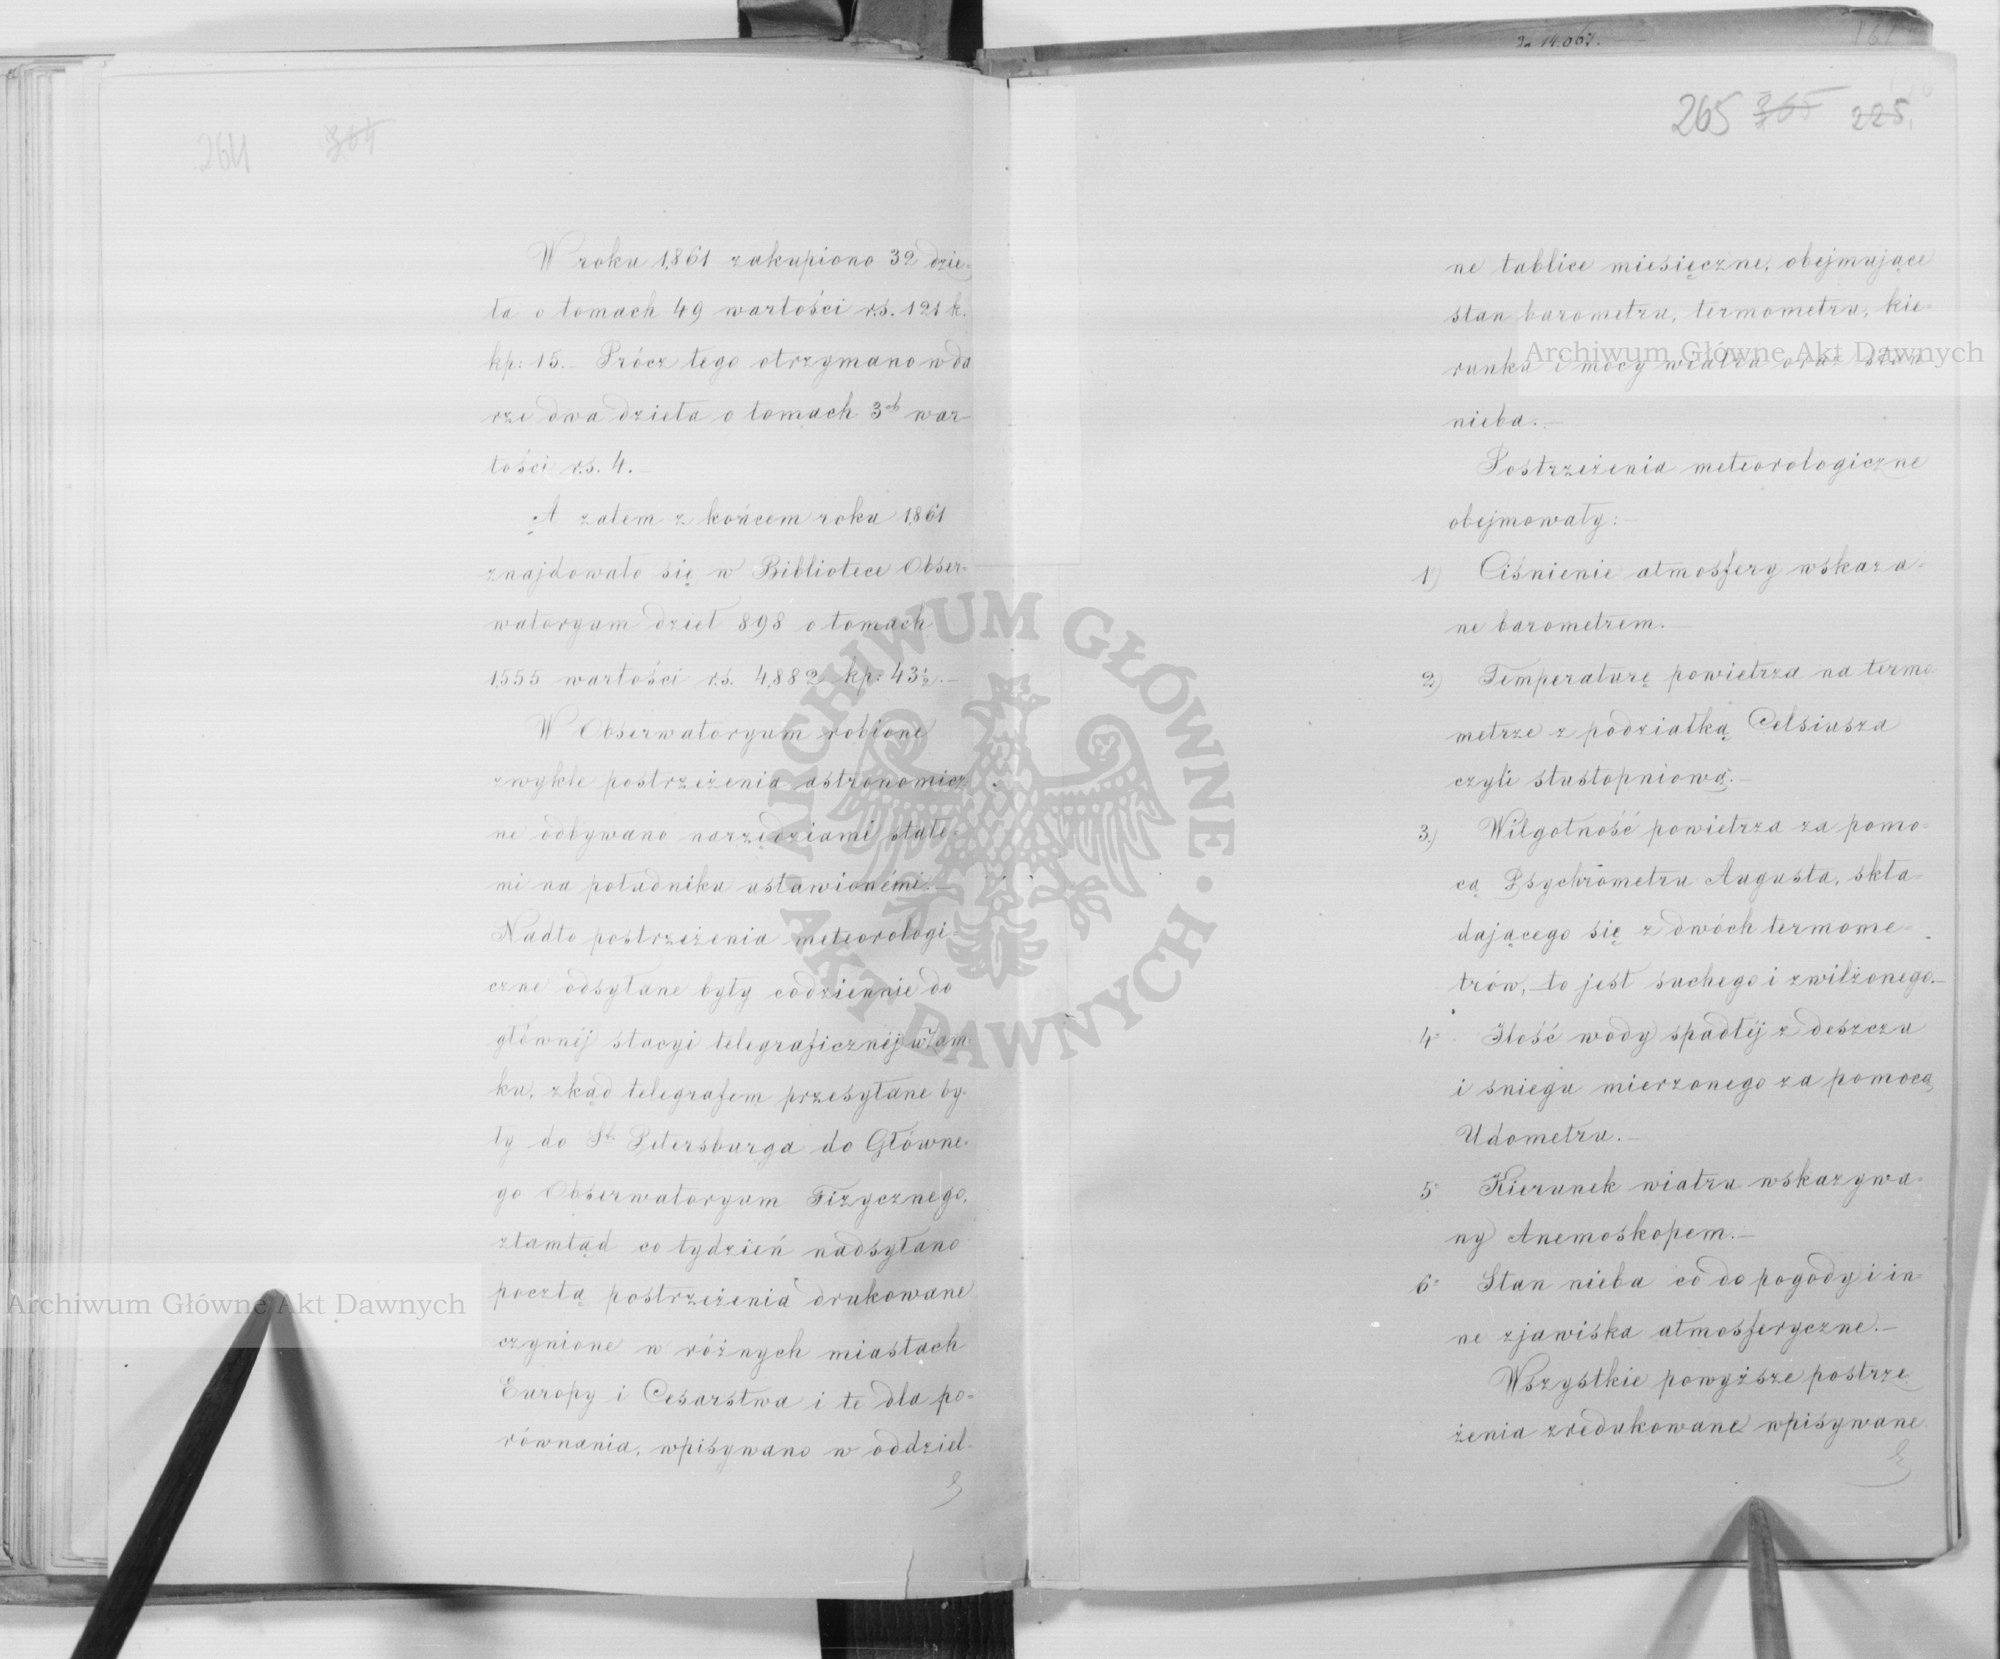 264 364
W roku 1861 zakupiono 32 dzie-
ła o tomach 49 wartości rs. 121 k.
kp: 15. Prócz tego otrzymano w da
rze dwa dzieła o tomach 3ch war-
tości rs. 4.
A zatem z końcem roku 1861
znajdowało się w Bibliotece Obser-
watoryum dzieł 898 o tomach
1,555 wartości rs. 4,882 kp: 43½.
W Obserwatoryum robione
zwykłe postrzeżenia astronomicz-
ne odbywano narzędziami stałe-
mi na południku ustawionémi.
Nadto postrzeżenia meteorologi-
czne odsyłane były codziennie do
głównéj stacyi telegraficznéj w Zam-
ku, zkąd telegrafem przesyłane by-
ły do St. Petersburga do Główne-
go Obserwatoryum Fizycznego,
ztamtąd co tydzień nadsyłano
pocztą postrzeżenia drukowane
czynione w różnych miastach
Europy i Cesarstwa i te dla po-
równania, wpisywano w oddziel-
14.067.
265 365 225
ne tablice miesięczne, obejmujące
stan barometru, termometru, kie-
runku i mocy wiatru oraz stan
nieba.
Postrzeżenia meteorologiczne
obejmowały:
1) Ciśnienie atmosfery wskaza-
ne barometrem.
2) Temperaturę powietrza na termo
metrze z podziałką Celsiusza
czyli stustopniową.
3.) Wilgotność powietrza za pomo-
cą Psychrometru Augusta, skła-
dającego się z dwóch termome-
trów, to jest suchego i zwilżonego.
4° Ilość wody spadłéj z deszczu
i sniegu mierzonego za pomocą
Udometru.
5° Kierunek wiatru wskazywa-
ny Anemoskopem.
6° Stan nieba co do pogody i in
ne zjawiska atmosferyczne.
Wszystkie powyższe postrze
żenia zredukowane wpisywane
Archiwum Główne Akt Dawnych
Archiwum Główne Akt Dawnych
ARCHIWUM GŁÓWNE · AKT DAWNYCH ·